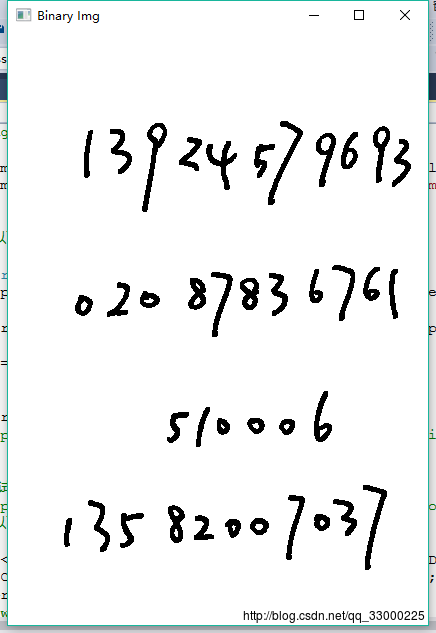 Binary Img
13924579693
020 87836761
510006
13582007037
http://blog.csdn.net/qq_33000225